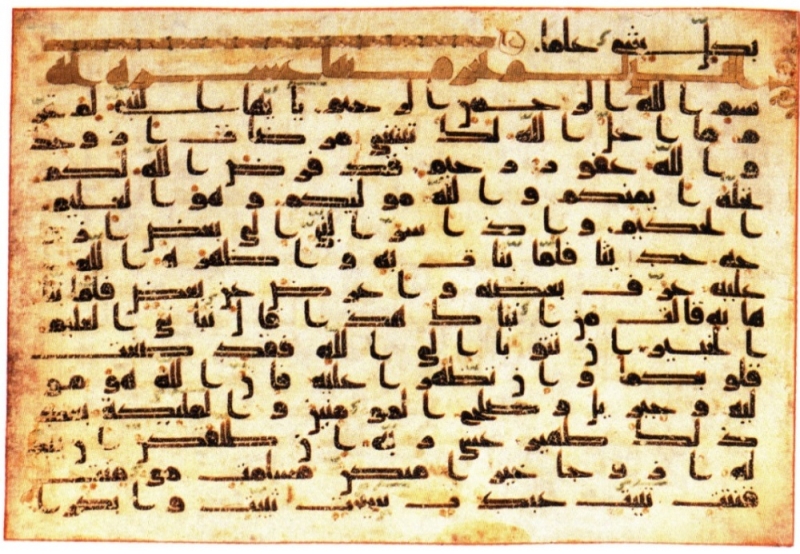 بكل شيء علما
عشره ايه
بسم الله الرحمن الرحيم يايها النبي لم تحر
م ما احل الله لك تبتغي مرضات ازوجك
والله غفور رحيم قد فرض الله لكم
تحلة ايمنكم والله موليكم وهو العليم
الحكيم واذ اسر النبي الى بعض ازو
جه حديثا فلما نبات به واظهره الله
عليه عرف بعضه واعرض عن بعض فلما نبا
ها به قالت من انباك هذا قال نباني العليم
الخبير ان تتوبا الى الله فقد صغت
قلوبكما وان تظهرا عليه فان الله هو مو
ليه وجبريل وصلح المومنين والمليكة بعد
ذلك ظهير عسى ربه ان طلقكن ان يبد
له ازوجا خيرا منكن مسلمت مومنت
قنتت تيبت عبدت سيحت ثيبت وابكارا